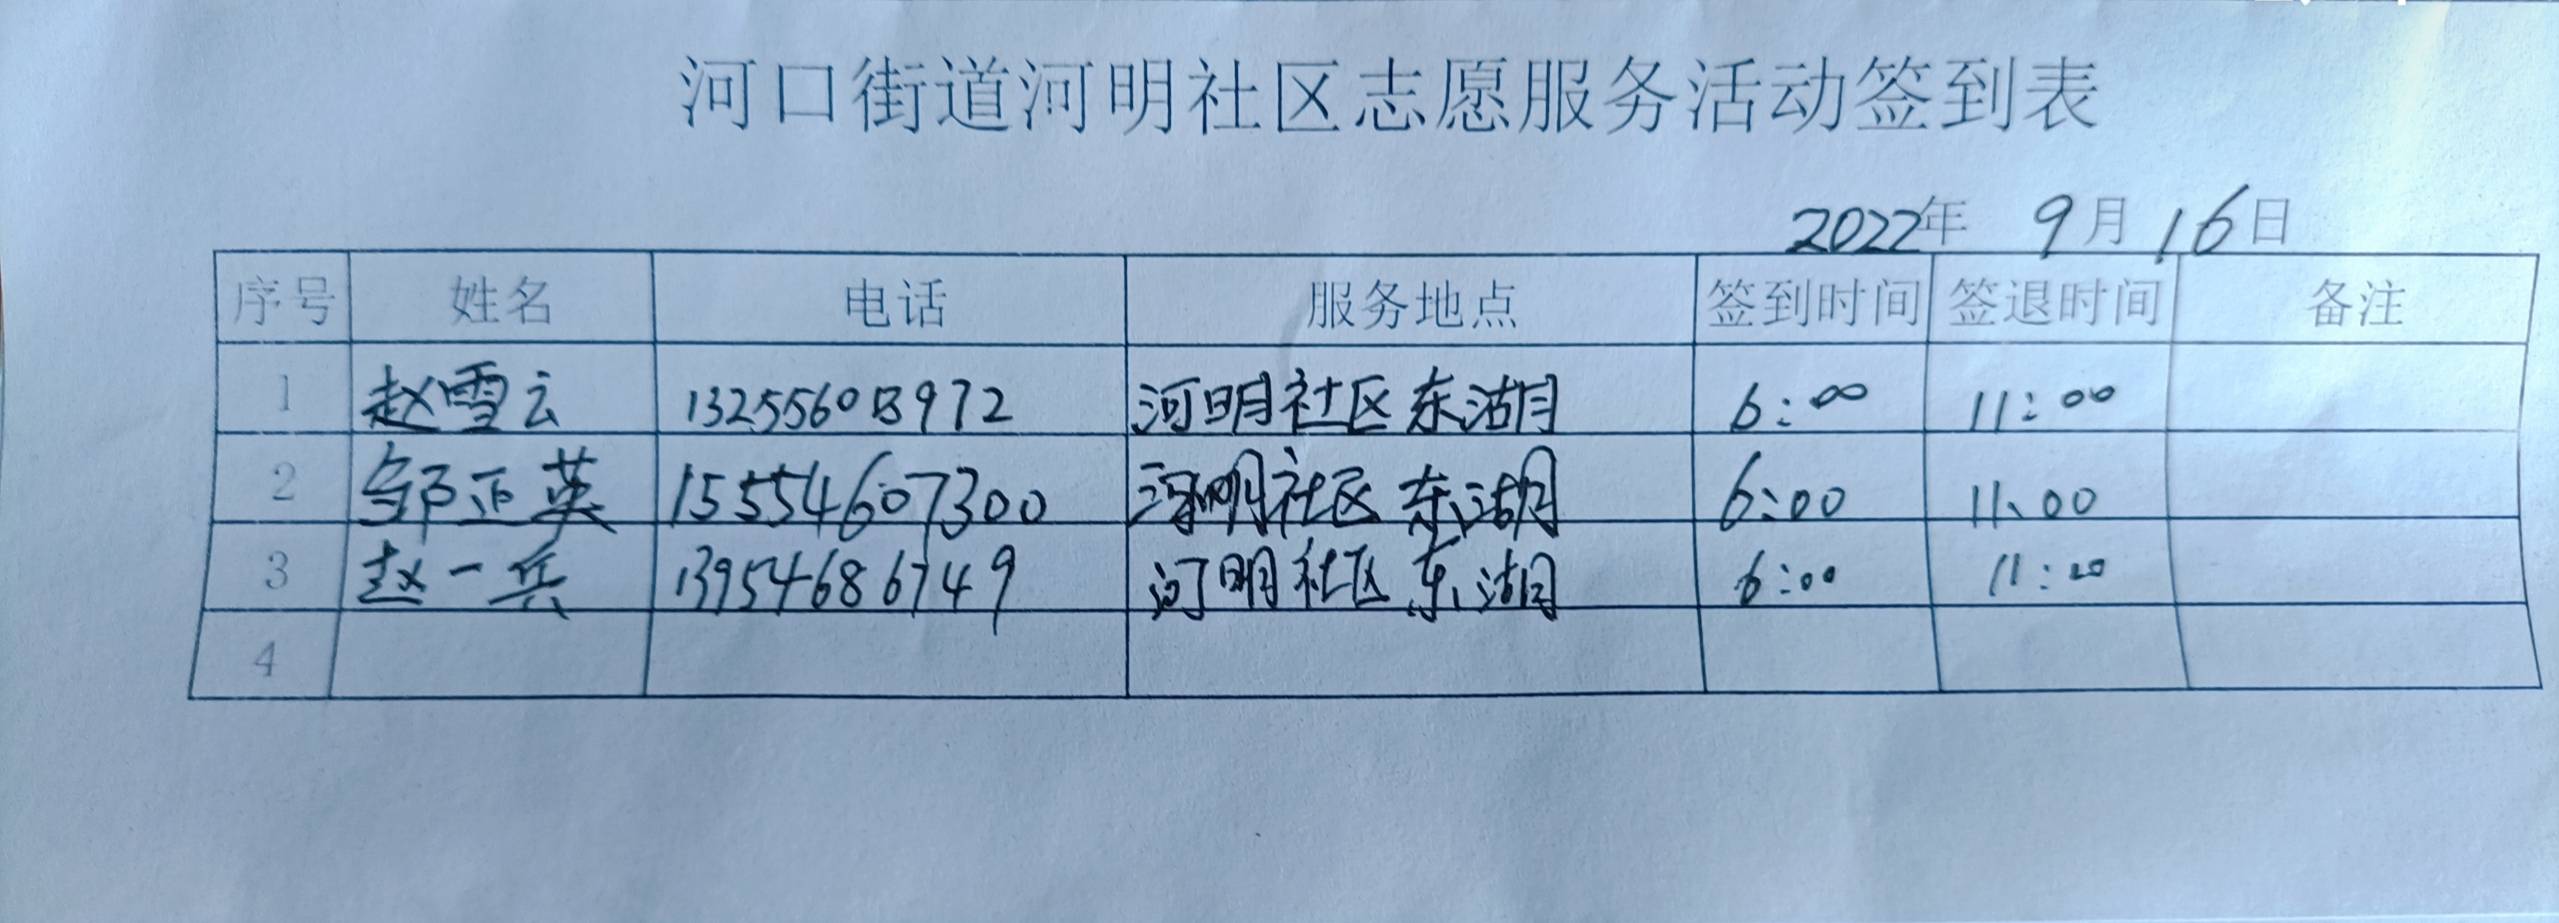 河口街道河明社区志愿服务活动签到表
2022年 9月16日
序号 姓名 电话 服务地点 签到时间 签退时间 备注
1 赵雪云 河明社区东湖 6:00 11:00
2 邹正英 15554607300 河明社区东湖 6:00 11:00
3 赵一兵 13954686749 河明社区东湖 6:00 11:00
4